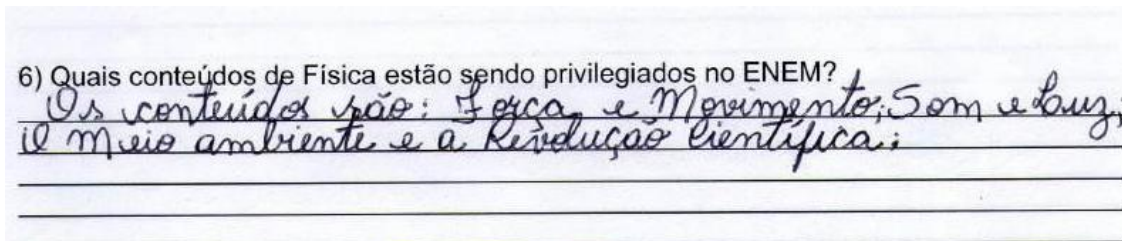 6) Quais conteúdos de Física estão sendo privilegiados no ENEM?
Os conteúdos são: Força e Movimento; Som e Luz;
O Meio ambiente e a Revolução Científica;